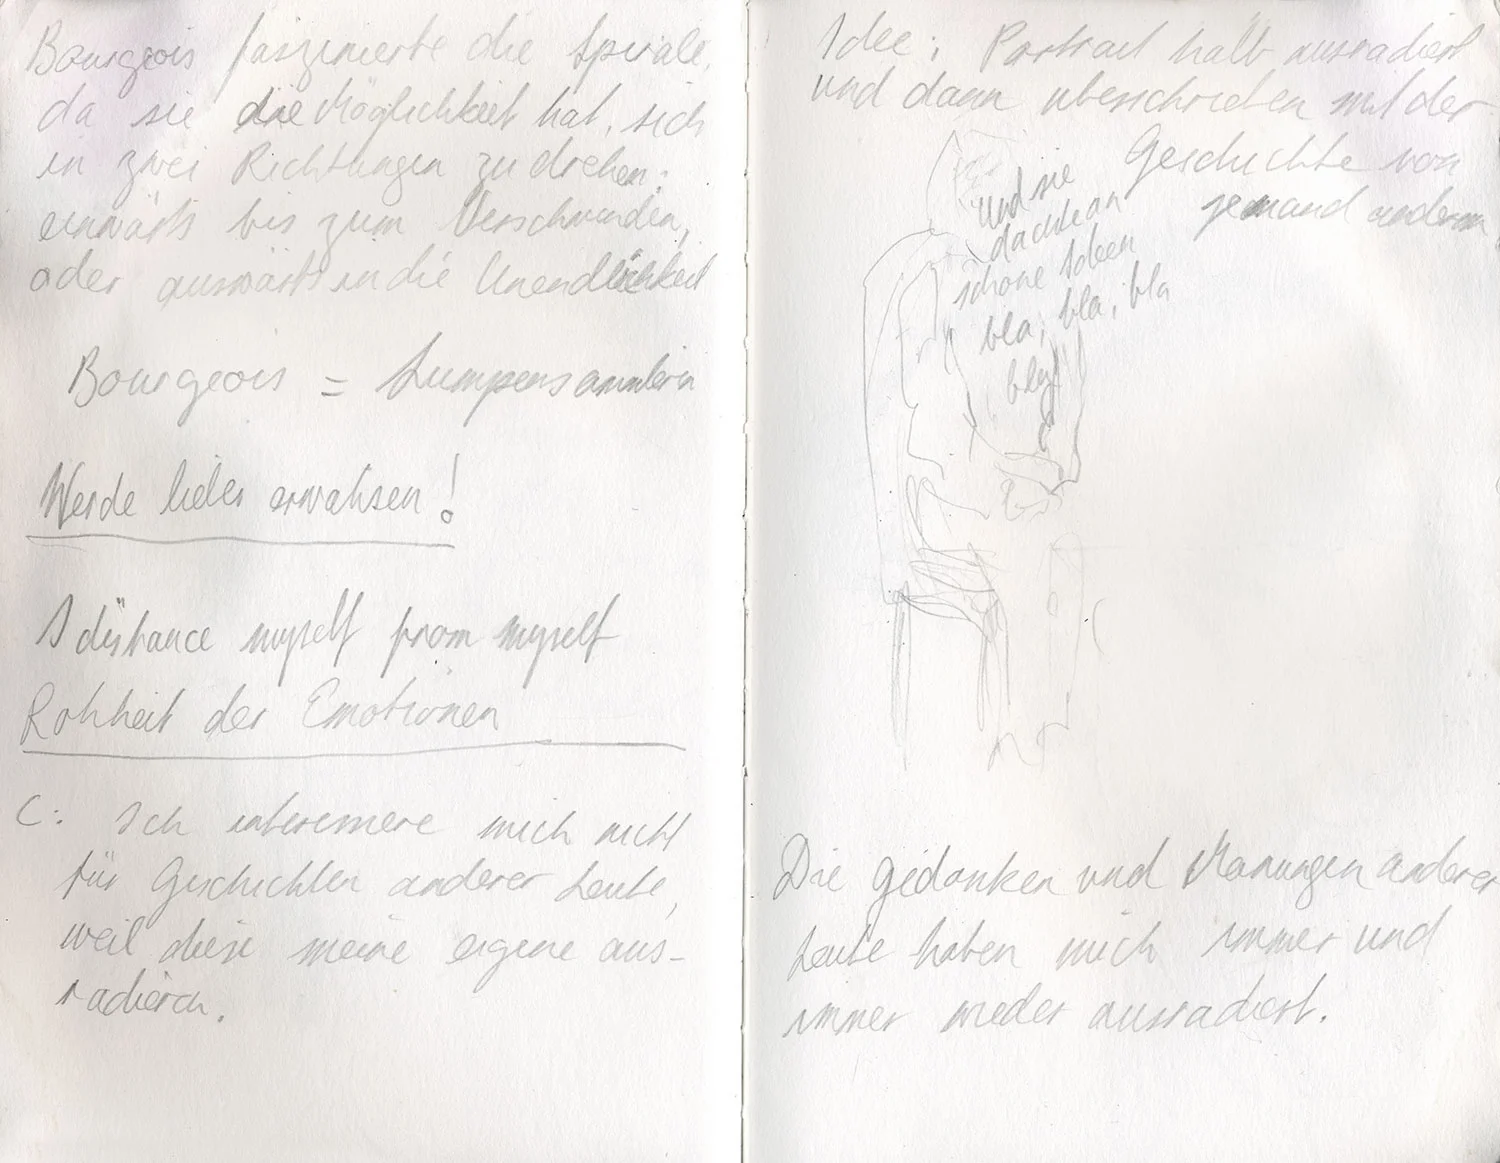 Bourgeois faszinierte die Spirale,
da sie die Möglichkeit hat, sich
in zwei Richtungen zu drehen:
einwärts bis zum Verschwinden,
oder auswärts in die Unendlichkeit
Bourgeois = Lumpensammlerin
Werde lieber erwahsen!
I distance myself from myself
Rohheit der Emotionen
C: Ich interessiere mich nicht
für Geschichten anderer Leute,
weil diese meine eigene aus-
radieren.
Idee: Portrait halb ausradiert
und dann überschrieben mit der
Geschichte von
jemand anderem
Und sie
dachte an
schöne Ideen
bla, bla, bla
bla
Die Gedanken und Meinungen anderer
Leute haben mich immer und
immer wieder ausradiert.